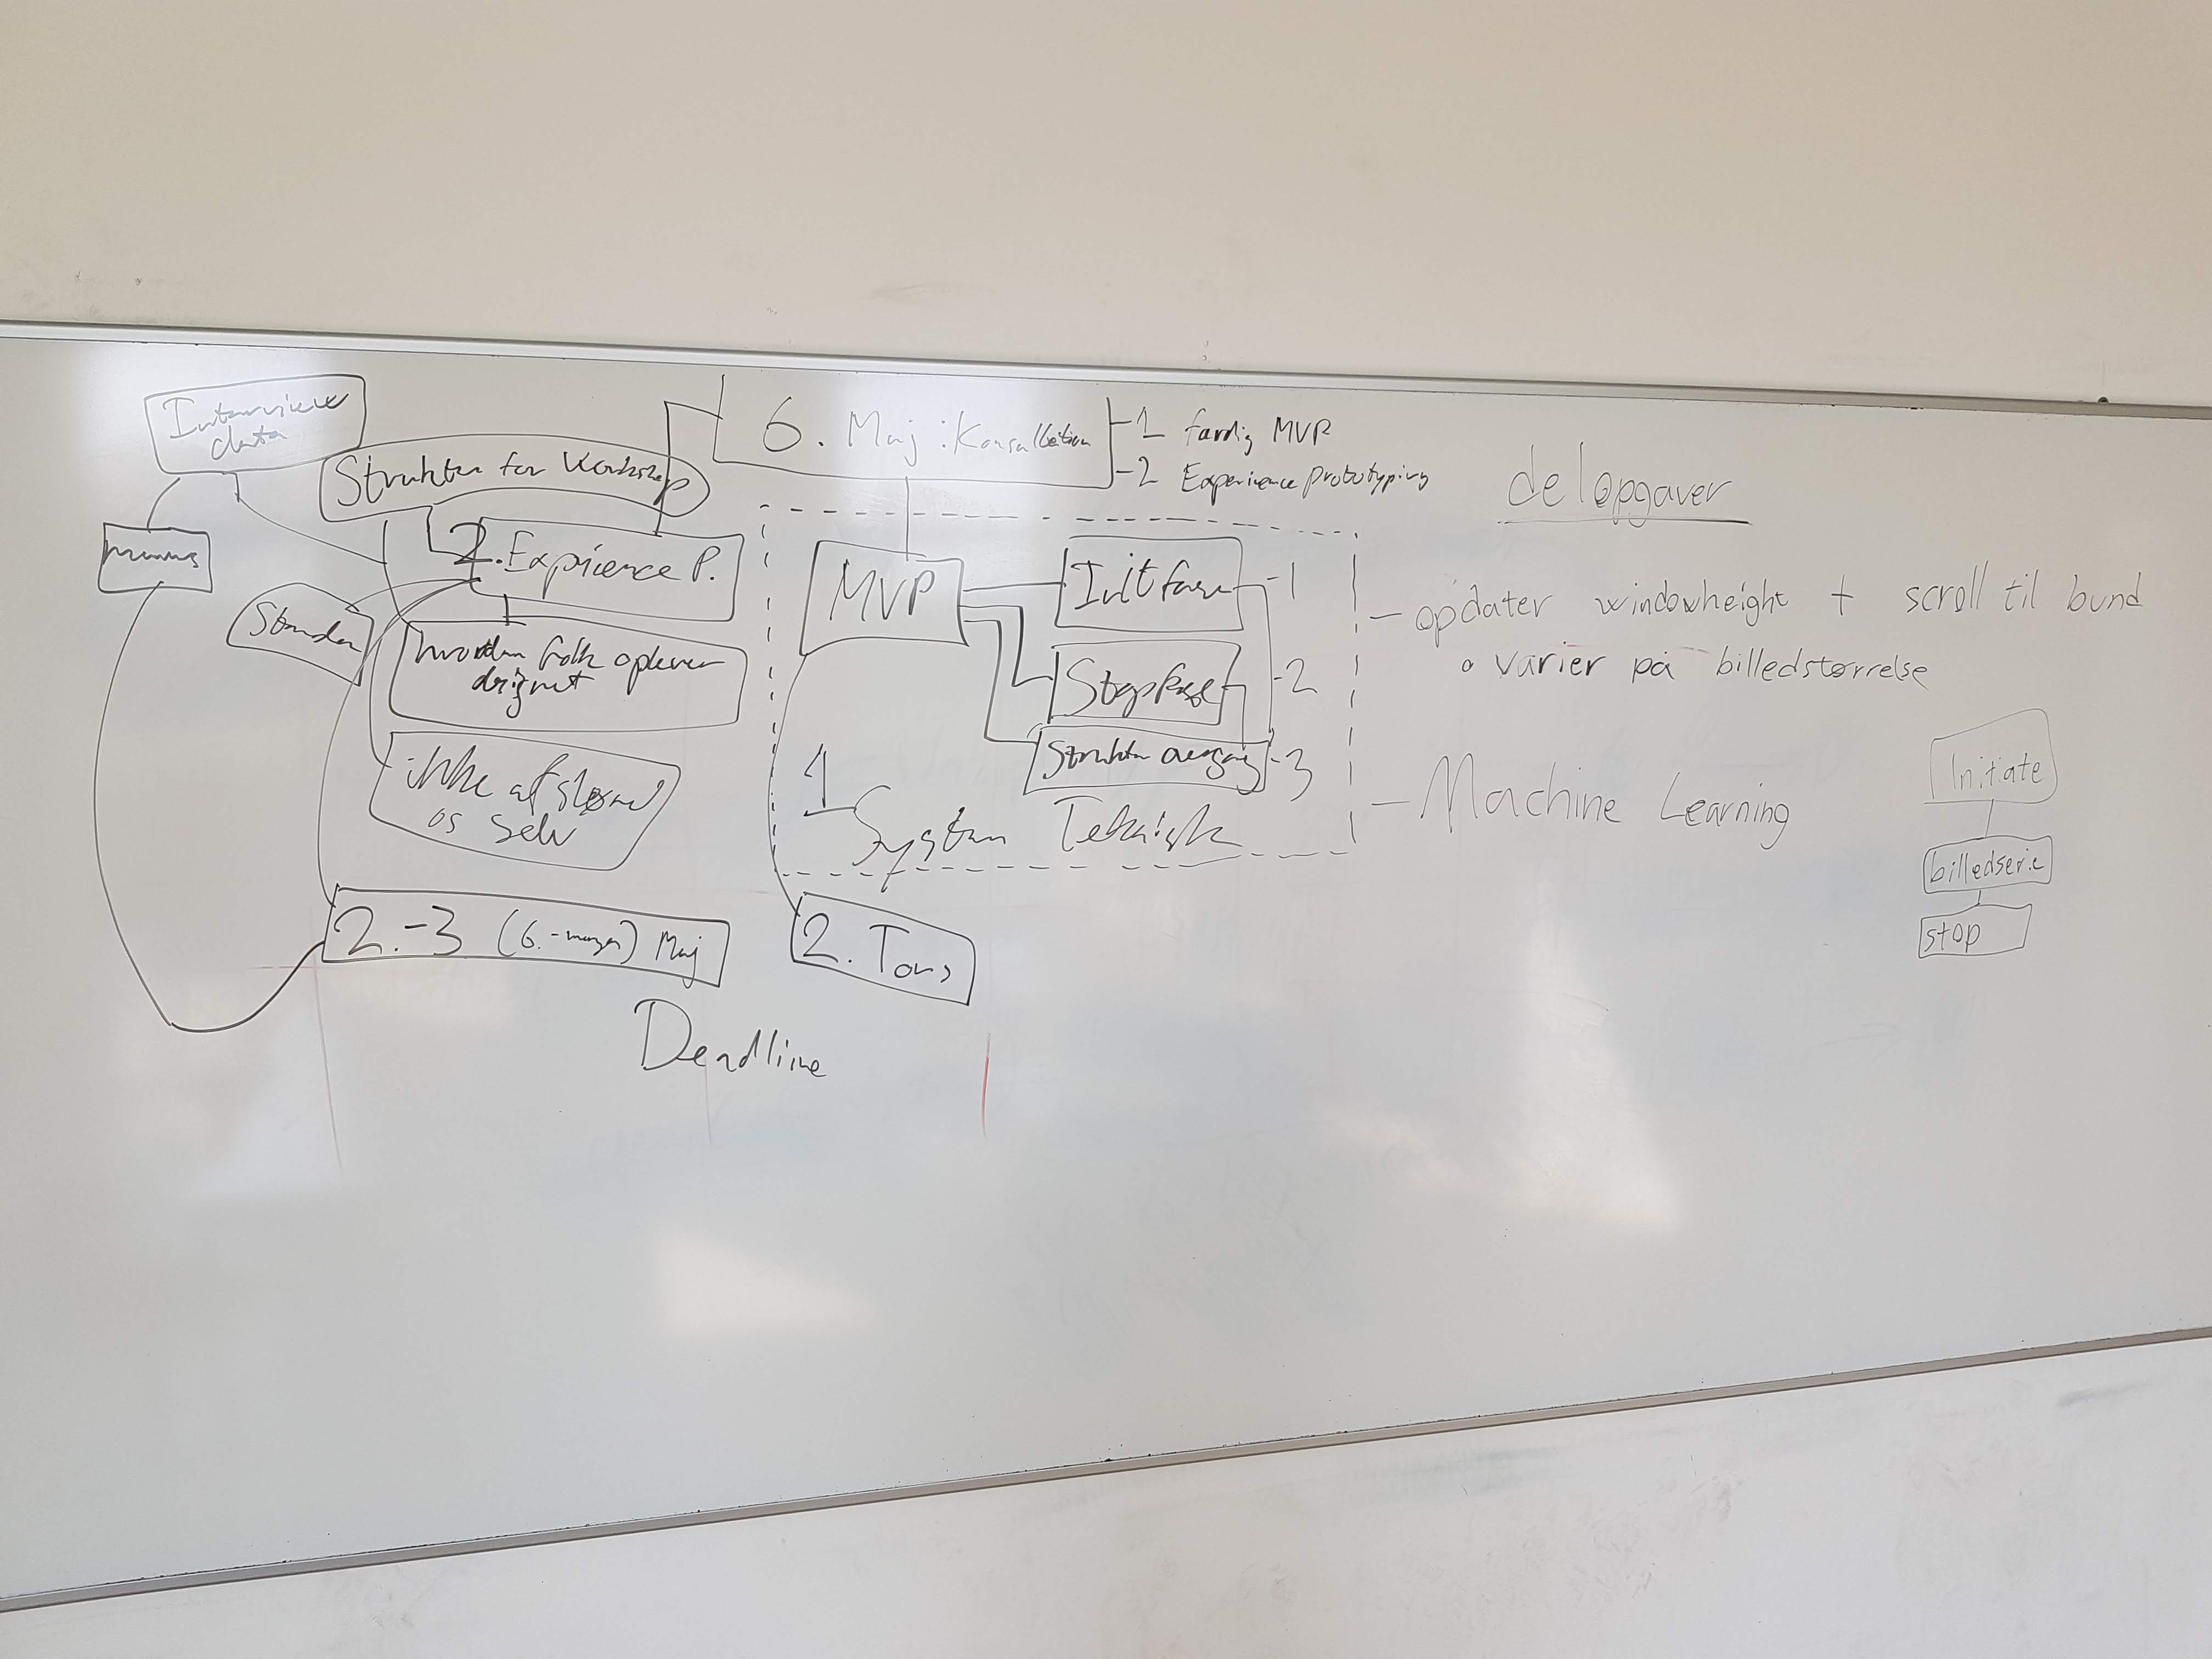 Interview
data
Struktur for Workshop
2. Exprience P.
hvordan folk oplever
designet
ikke afsløre
os selv
2.-3 (6.-morgen) Maj
Deadline
6. Maj : Konsultation
1 færdig MVP
2 Experience prototyping
MVP
Init fase
1
Stop fase
2
Struktur
3
1
System Teknisk
2. Tors
delopgaver
- opdater windowheight + scroll til bund
o varier på billedstørrelse
- Machine Learning
Initiate
billedserie
stop